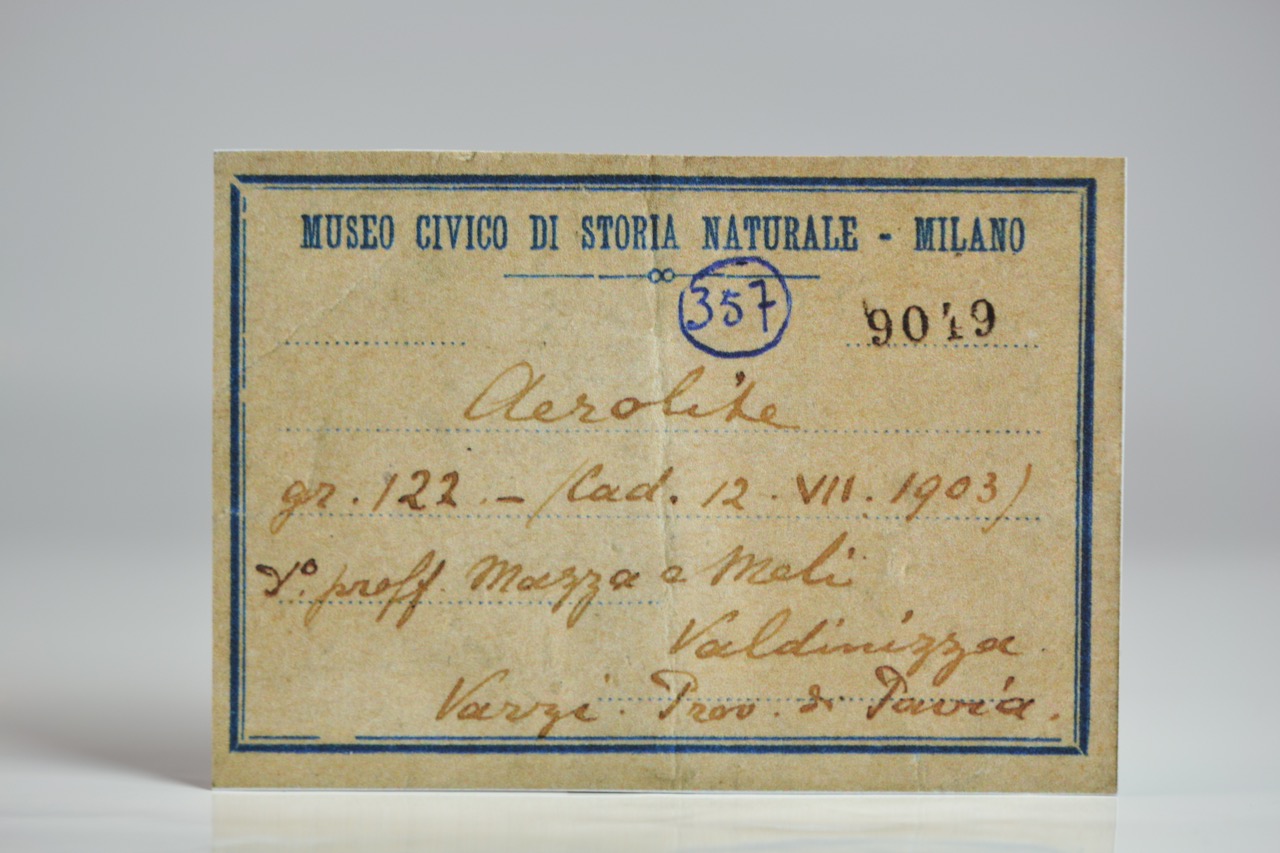 MUSEO CIVICO DI STORIA NATURALE - MILANO
357
9049
Aerolite
gr. 122 - (Cad. 12. VII. 1903)
proff. Mazza e Meli
Valdinizza
Varzi. Prov. di Pavia.